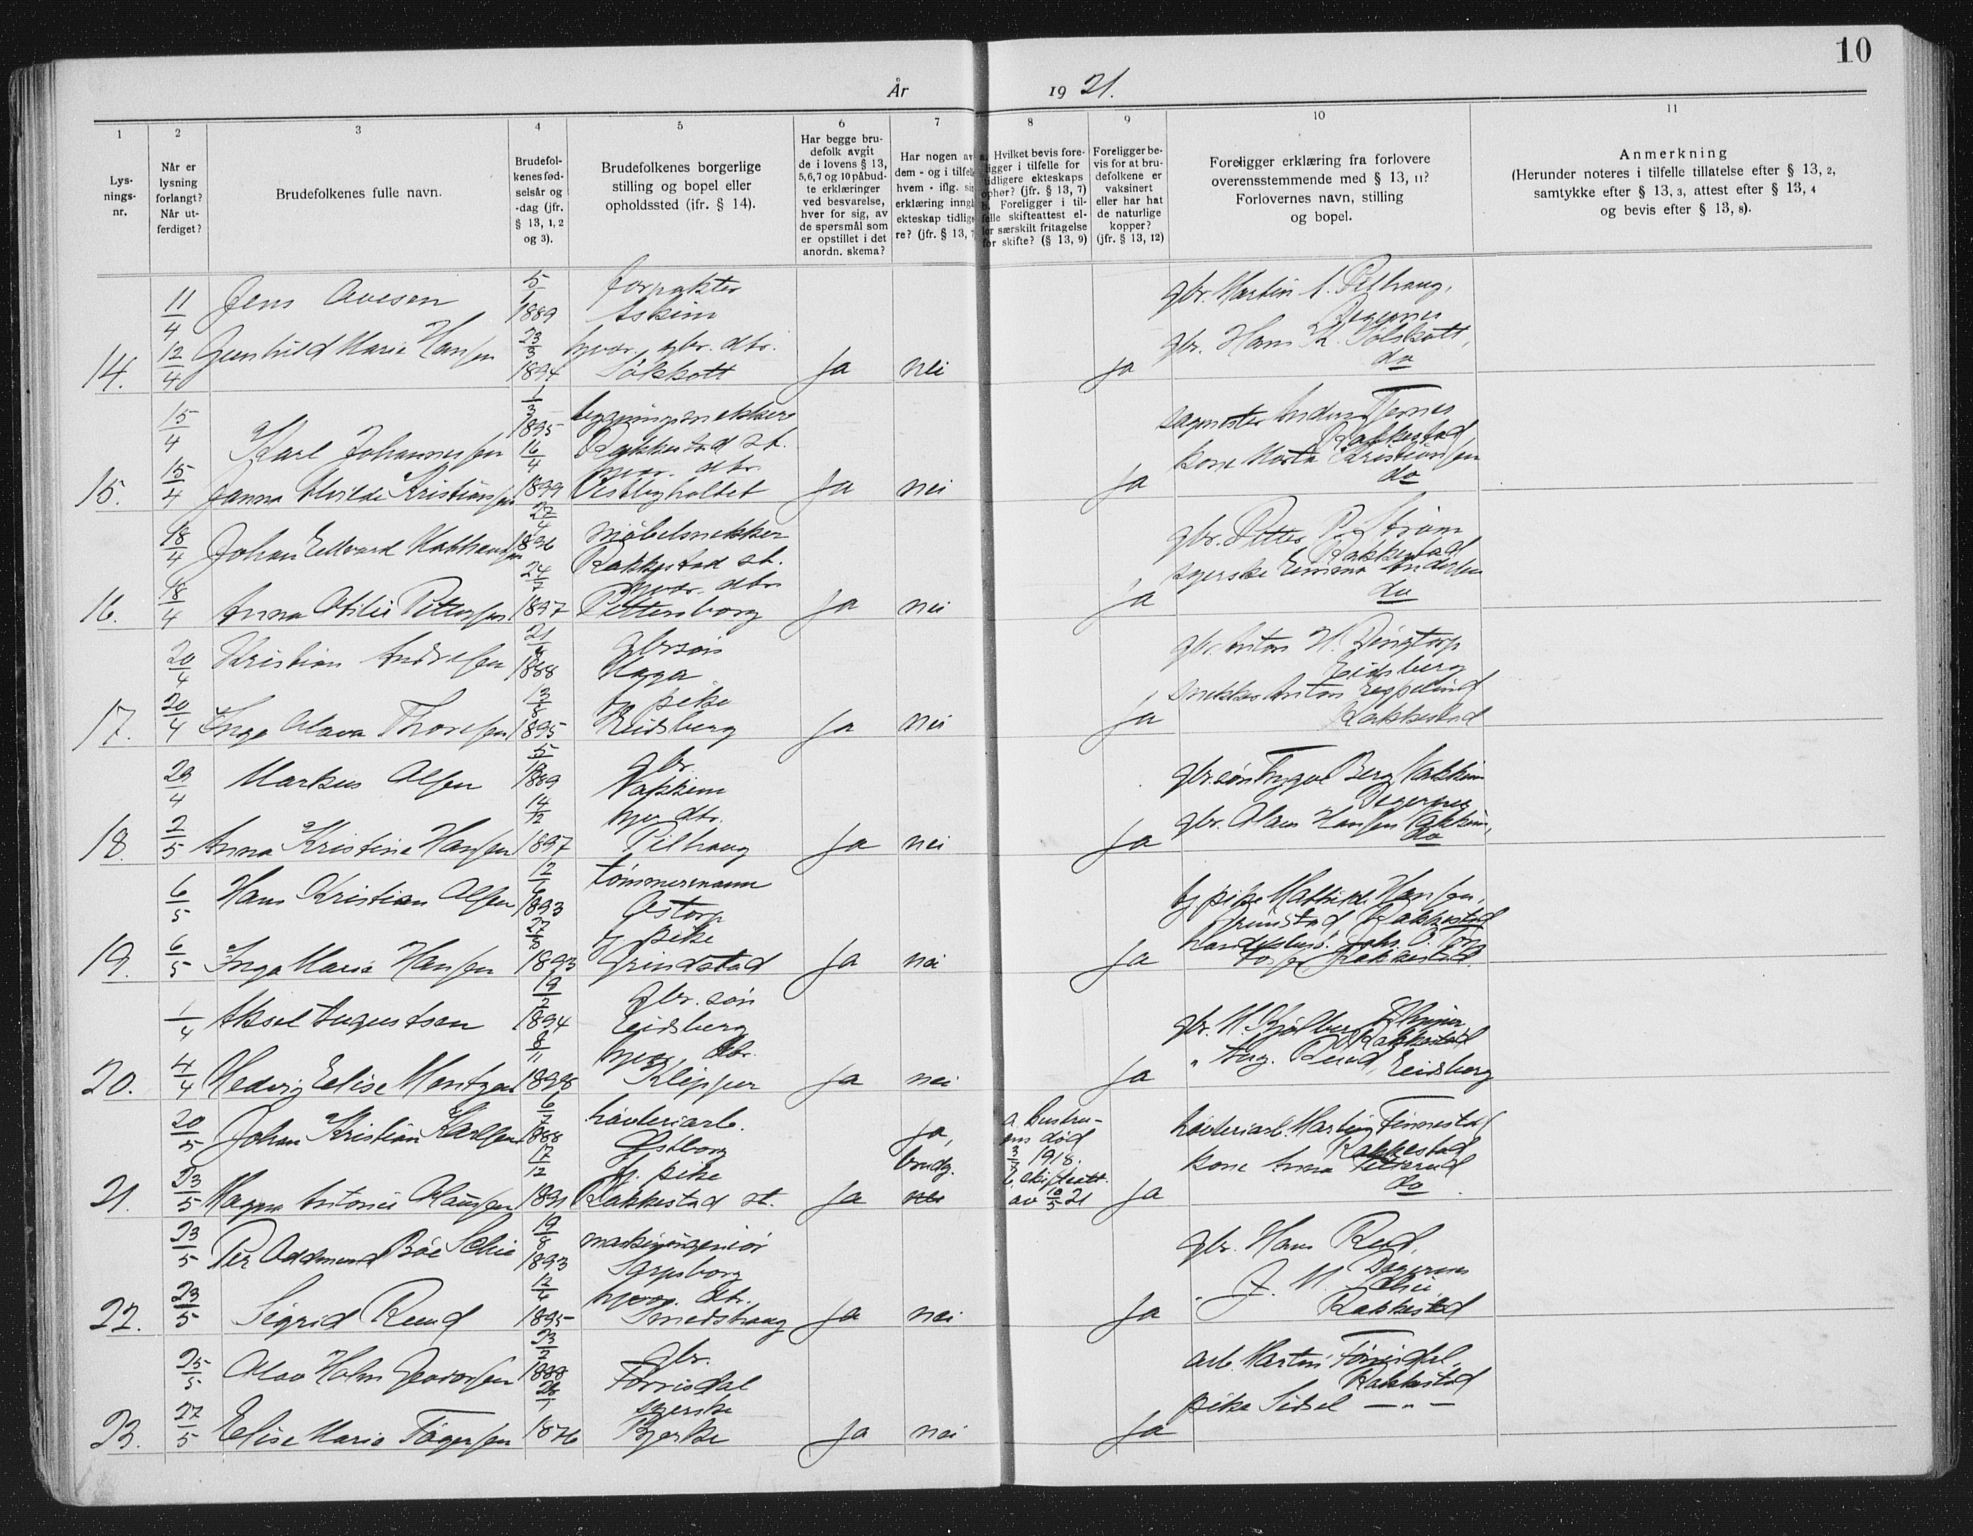 10
År 1921.
1 2 3 4 5 6 7 8 9 10 11
Lys-
nings-
nr.
Når er
lysning
forlangt?
Når ut-
ferdiget?
Brudefolkenes fulle navn.
Brudefol-
kenes fød-
selsår og
-dag (jfr.
§ 13, 1, 2
og 3).
Brudefolkenes borgerlige
stilling og bopel eller
opholdssted (ifr. § 14).
Har begge bru-
defolk avgit
de i lovens § 13,
5, 6, 7 og 10 påbud-
te erklæringer
ved besvarelse,
hver for sig, av
de spørsmål som
er opstillet i det
anordn. skema?
Har nogen av
dem - og i tilfel
hvem - iflg. si
erklæring inng
ekteskap tidlig
re? (jfr. § 13, 7
a. Hvilket bevis fore-
ligger i tilfelle for
tidligere ekteskaps
ophør? (jfr. § 13, 7)
b. Foreligger i til-
felle skifteattest el-
ler særskilt fritagelse
for skifte? (§ 13, 9)
Foreligger be-
vis for at bru-
defolkene er
vaksinert
eller har hat
de naturlige
kopper?
(jfr. § 13, 12)
Foreligger erklæring fra forlovere
overensstemmende med § 13, 11?
Forlovernes navn, stilling
og bopel.
Anmerkning
(Herunder noteres i tilfelle tillatelse efter § 13, 2,
samtykke efter § 13, 3, attest efter § 13, 4
og bevis efter § 13, 8).
11/4 Jens Avesen 5/1 1889 forpakter Askim gbr. Martin A. Pilhaug, Degernes
14. 12/4 Gunhild Marie Hansen 23/3 1894 hjvær. gbr. dtr. Sølskott Ja nei Ja gbr. Hans K. Sølskott, do
15/4 Karl Johannessen 1/3 1895 bygningssnekker Rakkestad st. sagmester Anders Ternes Rakkestad
15. 15/4 Janna Alvilde Kristiansen 16/4 1899 hjvær. dtr. Vestbyholtet Ja nei Ja kone Marta Kristiansen do
18/4 Johan Edvard Mathisen 27/4 1896 møbelsnekker Rakkestad st. gbr. Petter P. Strøm Rakkestad
16. 18/4 Anna Otilie Pettersen 24/7 1897 hjvær. dtr. Pettersborg Ja nei Ja syerske Emma Andersen do
20/4 Kristian Andresen 21/ 1888 gbrsøn Haga gbr. Anton H. Eidsberg
17. 20/4 Inga Olava Thoresen 13/8 1895 tj. pike Eidsberg Ja nei Ja snekker Anton Eppelund Rakkestad
29/4 Markus Olsen 5/ 1889 gbr. Vakkim gbr. søn Trygve Berg Vakkim Degernes
18. 2/5 Anna Kristine Hansen 14/12 1897 hjv. dtr. Pilhaug Ja nei Ja gbr. Olaus Hansen Vakkim, do
6/5 Hans Kristian Olsen 12/ 1893 tømmermann Østorp tj. pike Mathilde Hansen, Grinstad Rakkestad
19. 6/5 Inga Marie Hansen 27/ 1893 tj. pike Grindstad Ja nei Ja Johs. O. Rakkestad.
1/4 Aksel Augustsen 19/2 1894 gbr. søn Eidsberg gbr. M. Rakkestad
20. 4/4 Hedvig Elise Mentzen 8/11 1898 hjvær. dtr. Klipper Ja nei Ja " Aug. Ruud, Eidsberg
20/5 Johan Kristian Karlsen 6/7 1888 høvleriarb. Østborg Ja, brudg. a. hustru- ens død 1918. høvleriarb. Martin Finnestad Rakkestad
21. 23/5 Magna Antonie Olaussen 17/12 1891 tj. pike Rakkestad st. Ja nei b. skifteatt. av 10/5 21 Ja kone Anna do
23/5 Per Oddmund Bøe Schie 19/8 1893 maskiningeniør Sarpsborg gbr. Hans Rud, Degernes
22. 23/5 Sigrid Ruud 12/4 1895 hjvær. dtr. Smedshaug Ja nei Ja " J. M. Schie, Rakkestad
25/5 Olav Holm Gudorsen 23/ 1888 gbr. Tørrisdal arb. Martin Tørrisdal, Rakkestad
23. 27/5 Elise Marie Tøgersen 26/1 1876 syerske Bjerke Ja nei Ja pike Sidsel — " —